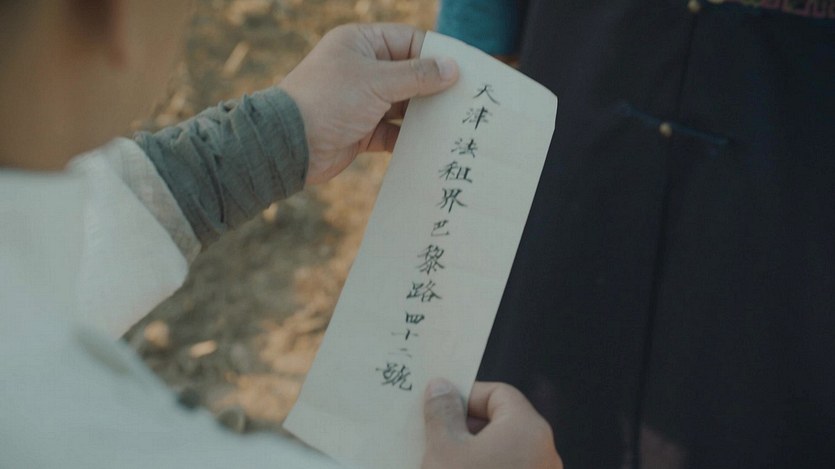 天津法租界巴黎路四十二號